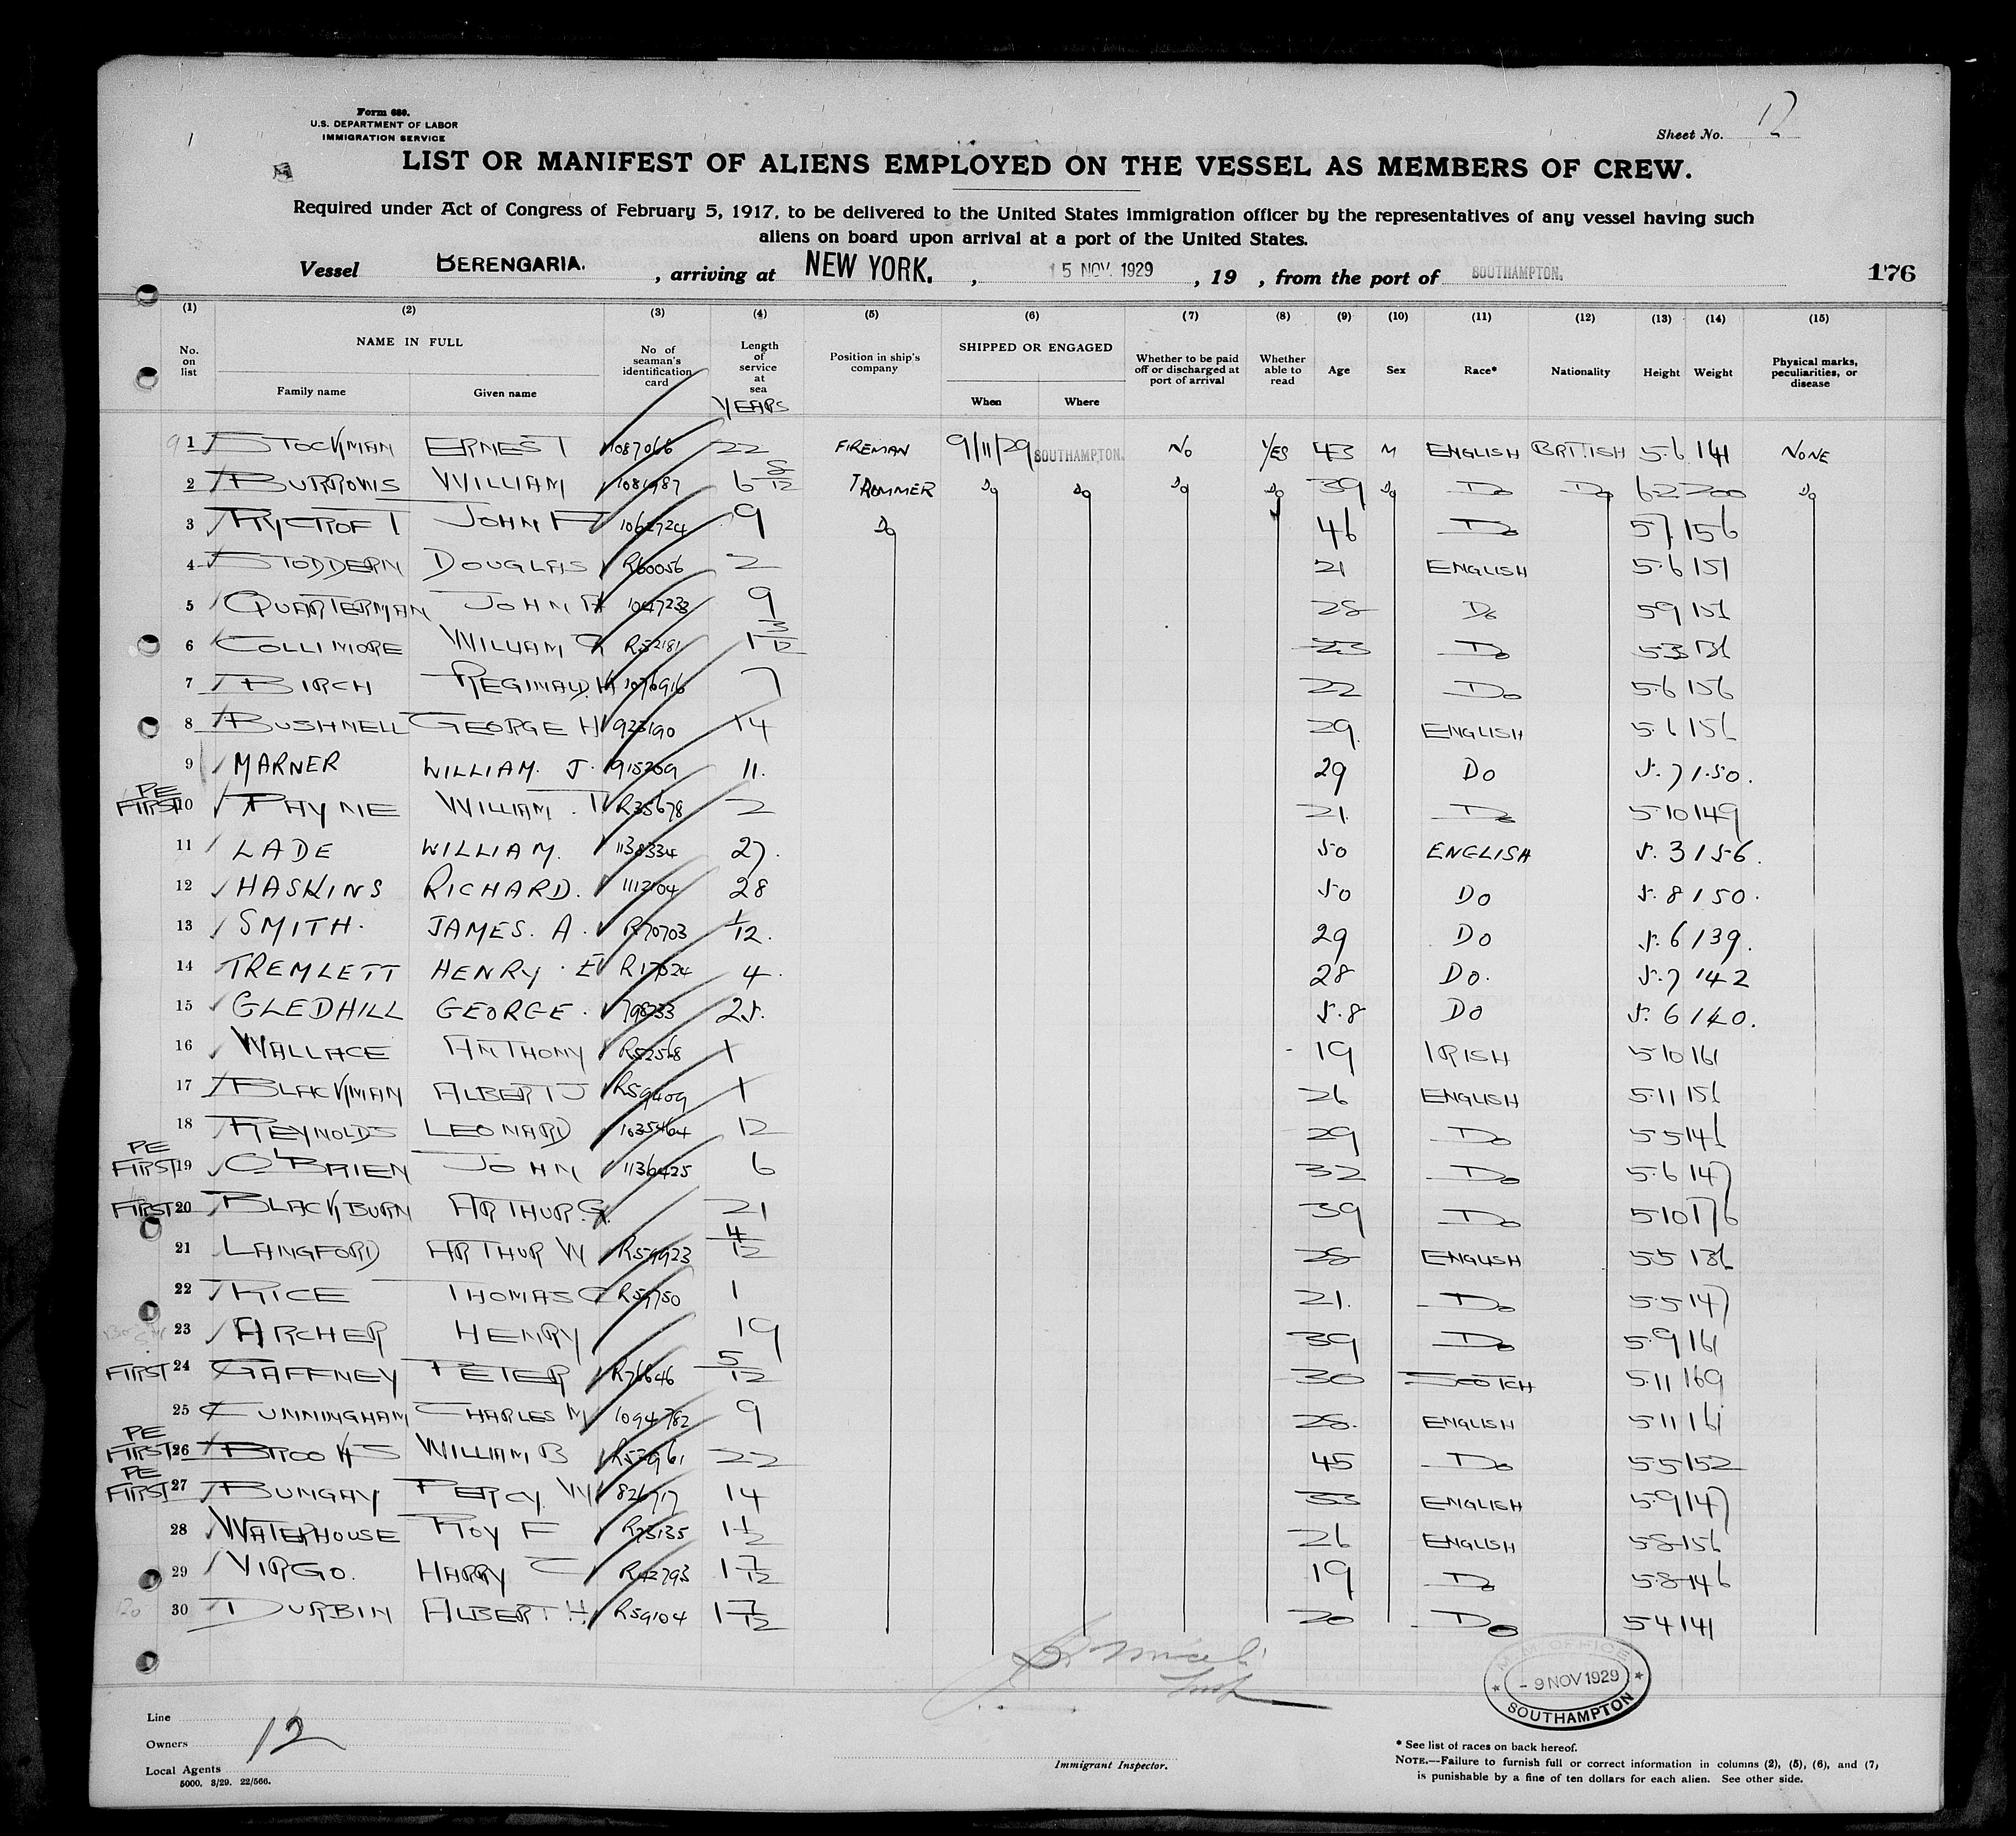 Form 680.
U.S. DEPARTMENT OF LABOR
IMMIGRATION SERVICE
Sheet No. 12
LIST OR MANIFEST OF ALIENS EMPLOYED ON THE VESSEL AS MEMBERS OF CREW.
Required under Act of Congress of February 5, 1917, to be delivered to the United States immigration officer by the representatives of any vessel having such
aliens on board upon arrival at a port of the United States.
Vessel BERENGARIA. , arriving at NEW YORK. , 15 NOV. 1929 , 19 , from the port of SOUTHAMPTON. 176
(1) (2) (3) (4) (5) (6) (7) (8) (9) (10) (11) (12) (13) (14) (15)
No. on list NAME IN FULL Family name Given name No of seaman's identification card Length of service at sea YEARS Position in ship's company SHIPPED OR ENGAGED When Where Whether to be paid off or discharged at port of arrival Whether able to read Age Sex Race* Nationality Height Weight Physical marks, peculiarities, or disease
1 STOCKMAN ERNEST 1087066 22 FIREMAN 9/11/29 SOUTHAMPTON. NO YES 43 M ENGLISH BRITISH 5.6 141 NONE
2 BURROWS WILLIAM 6 8/12 TRIMMER Do Do Do Do 39 Do Do Do 62 200 Do
3 RYCROFT JOHN F 1062724 9 Do 46 Do 57 156
4 STODDERN DOUGLAS R60056 2 21 ENGLISH 5.6 151
5 QUARTERMAN JOHN 1047233 9 28 Do 59 151
6 COLLIMORE WILLIAM R52181 1 3/12 23 Do 53 136
7 BIRCH REGINALD. H 1076916 7 22 Do 5.6 156
8 BUSHNELL GEORGE H 923190 14 29. ENGLISH 5.6 156
9 MARNER WILLIAM. J. 915209 11. 29 DO 5.7 150.
PE
FIRST 10 PAYNE WILLIAM. T R35678 2 21. Do 5-10 149
11 LADE WILLIAM. 1138334 27. 50 ENGLISH 5.3 156.
12 HASKINS RICHARD. 1112104 28 50 DO 5.8 150.
13 SMITH. JAMES. A. R70703 1/12. 29 DO 5.6 139.
14 TREMLETT HENRY. E R17024 4. 28 DO. 5.7 142
15 GLEDHILL GEORGE. 798233 25. 5.8 DO 5.6 140.
16 WALLACE ANTHONY R52568 1 19 IRISH 5-10 161
17 BLACKMAN ALBERT J R59409 1 26 ENGLISH 5.11 156
18 REYNOLDS LEONARD 1035464 12 29 Do 55 146
PE
FIRST 19 O'BRIEN JOHN 1136425 6 32 Do 5.6 147
FIRST 20 BLACKBURN ARTHUR. G. 21 39 Do 5-10 176
21 LANGFORD ARTHUR W R59923 4/12 28 ENGLISH 55 136
22 RICE THOMAS C R59750 1 21. Do 5.5 147
23 ARCHER HENRY 19 39 Do 5.9 161
FIRST 24 GAFFNEY PETER R76646 5/12 30 SCOTCH 5.11 169
25 CUNNINGHAM CHARLES M 1094782 9 28. ENGLISH 5.11 161
PE
FIRST 26 BROOKS WILLIAM B R53961 22 45 Do 5.5 152
PE
FIRST 27 BUNGAY PERCY. W 826717 14 33 ENGLISH 5.9 147
28 WATERHOUSE ROY F R73135 1 1/2 26 ENGLISH 5.8 156
29 VIRGO. HARRY C R42793 1 7/12 19 Do 5.8 146
30 DURBIN ALBERT H. R59104 1 7/12 20 Do 54 141
M.M. OFFICE
- 9 NOV 1929
SOUTHAMPTON
Line
Owners 12
Local Agents
5000. 3/29. 22/566.
Immigrant Inspector.
* See list of races on back hereof.
NOTE.—Failure to furnish full or correct information in columns (2), (5), (6), and (7),
is punishable by a fine of ten dollars for each alien. See other side.